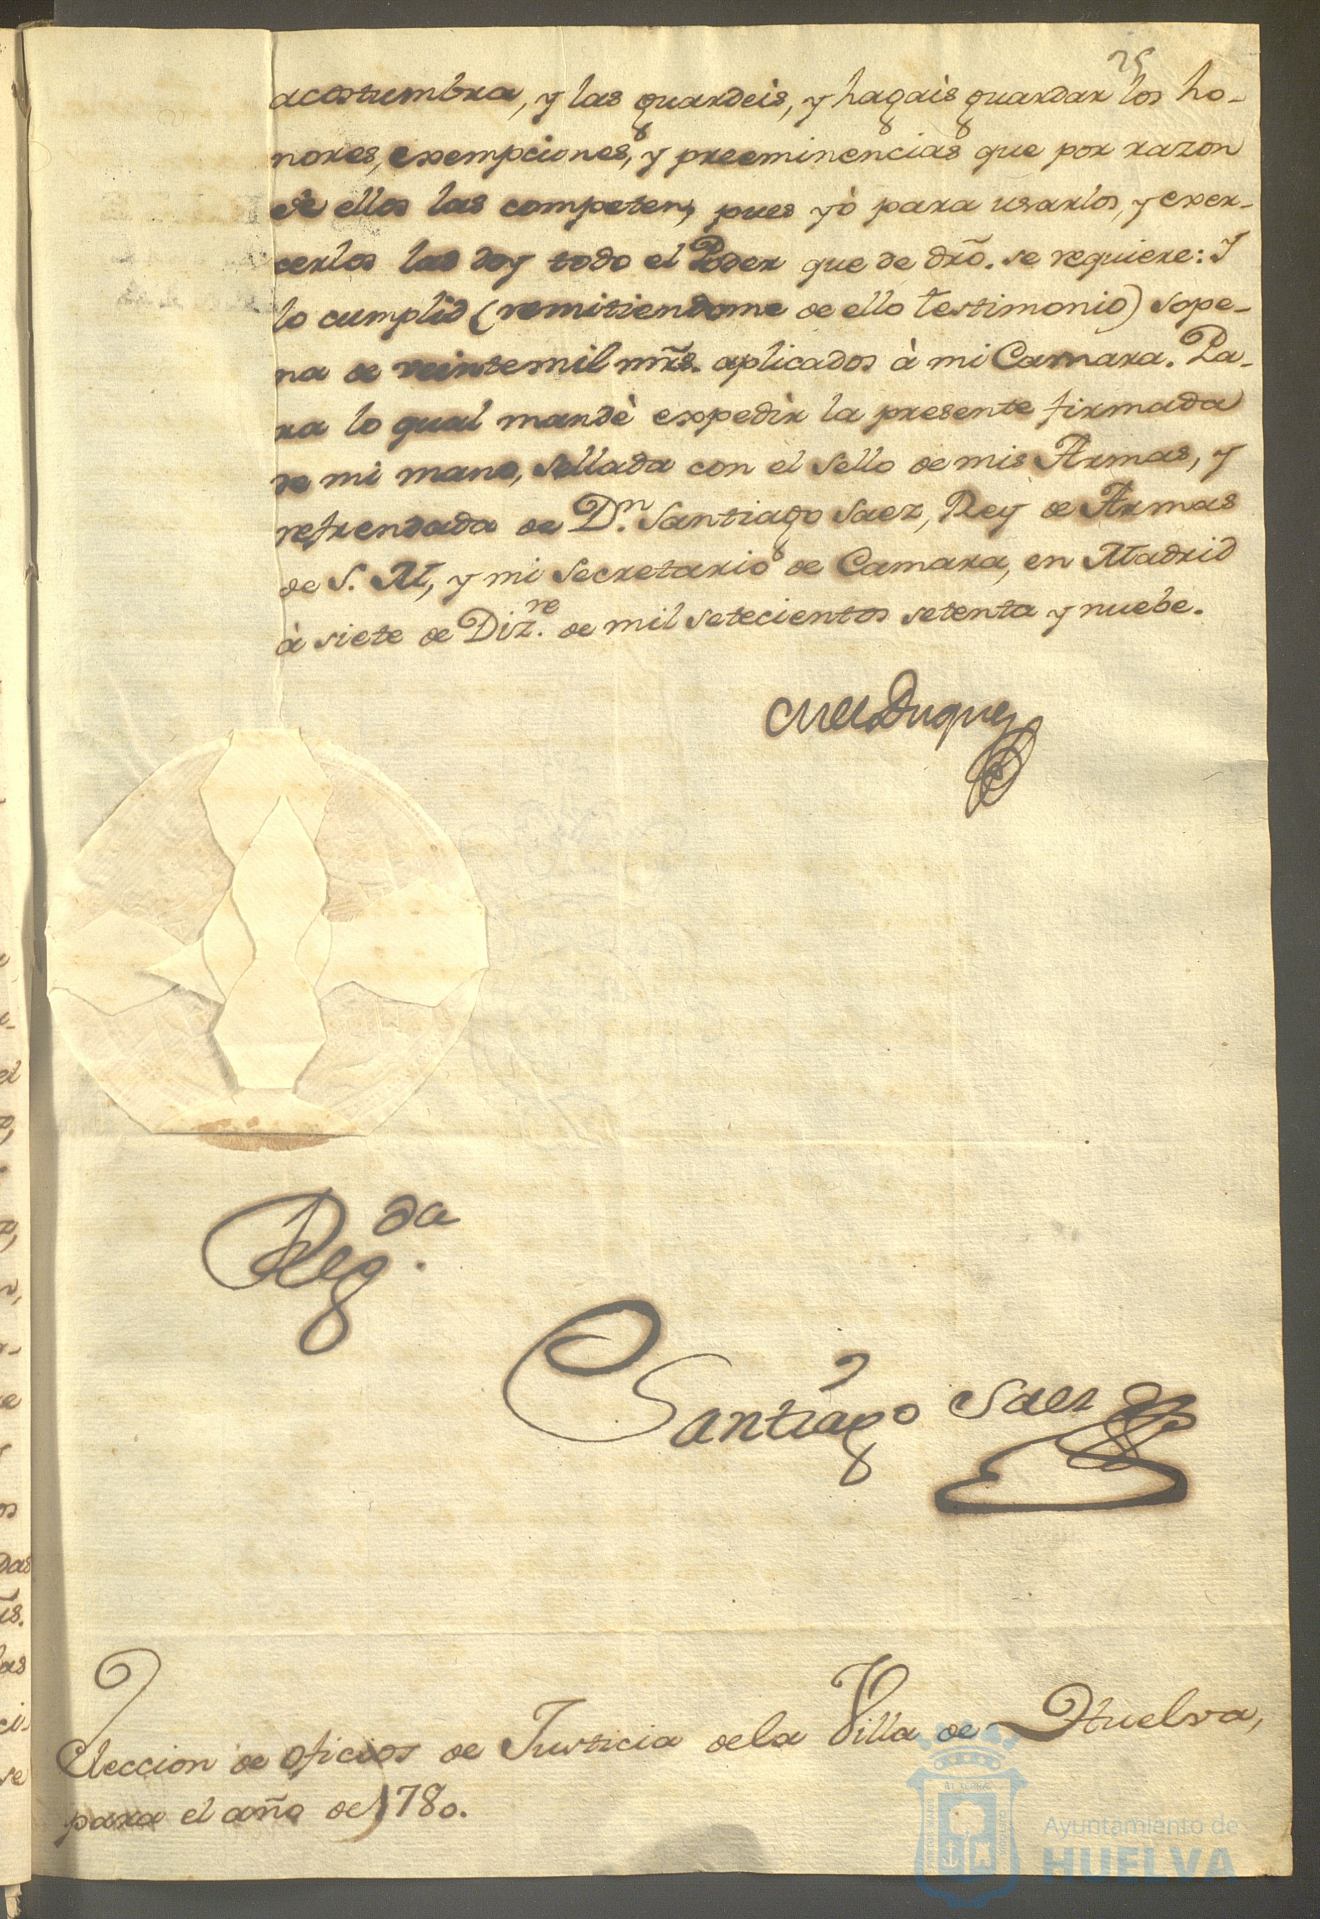 25
acostumbra, y las guardeis, y hagais guardar los ho-
nores, exempciones, y preeminencias que por razon
de ellos las competen, pues yò para usarlos, y exer-
cerlos las doy todo el Poder que de dro. se requiere: I
lo cumplid (remitiendome de ello testimonio) sope-
na de veintemil mrs. aplicados à mi Camara. Pa-
ra lo qual mandè expedir la presente firmada
de mi mano, sellada con el Sello de mis Armas, y
refrendada de Dn. Santiago Saez, Rey de Armas
de S. M, y mi Secretario de Camara, en Madrid
à siete de Dizre. de mil setecientos setenta y nuebe.
Duque
Regda.
Santiago Saez
Eleccion de oficios de Justicia de la Villa de Huelva,
para el año de 1780.
Ayuntamiento de
HUELVA